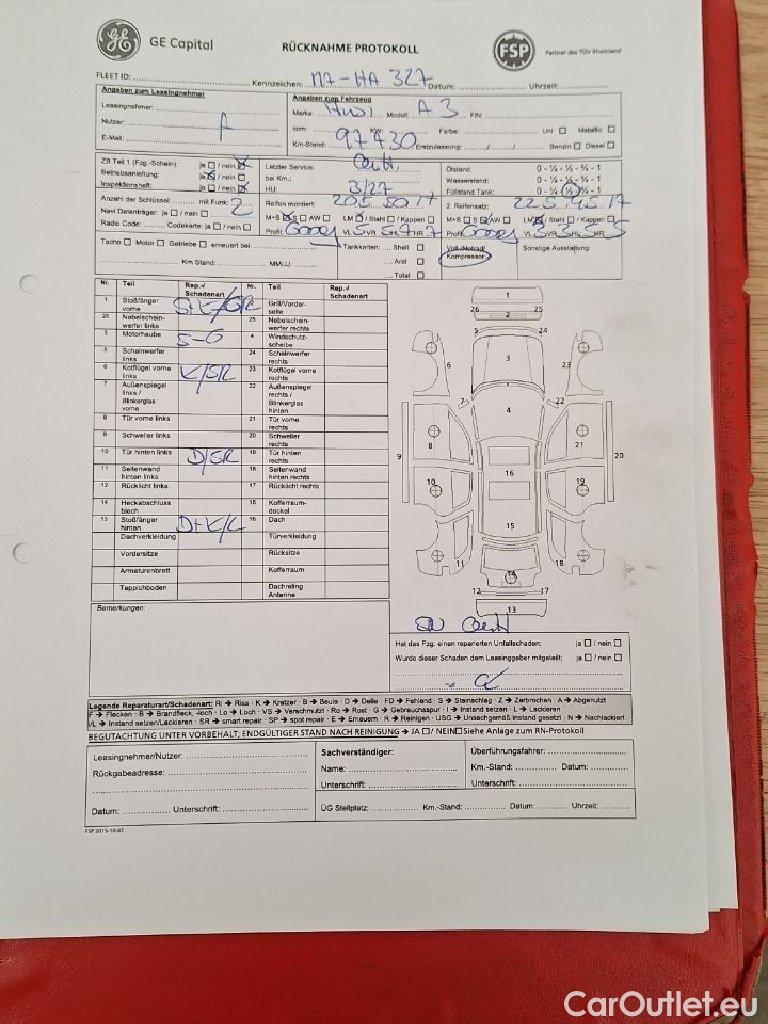 GE Capital
RÜCKNAHME PROTOKOLL
FSP
Partner des TÜV Rheinland
FLEET ID: Kennzeichen: Datum: Uhrzeit:
Angaben zum Leasingnehmer
Angaben zum Fahrzeug
Leasingnehmer:
Marke: Audi Modell: A3 FIN:
Nutzer:
ccm: Farbe: Uni Metallic
E-Mail:
Km-Stand: 97430 Erstzulassung: Benzin Diesel
ZB Teil 1 (Fzg.-Schein): ja / nein
Letzter Service:
Ölstand: 0 - ¼ - ½ - ¾ - 1
Betriebsanleitung: ja / nein
bei Km.:
Wasserstand: 0 - ¼ - ½ - ¾ - 1
Inspektionsheft: ja / nein
HU: 3/27
Füllstand Tank: 0 - ¼ - ½ - ¾ - 1
Anzahl der Schlüssel: mit Funk: 2
Reifen montiert: 205 50 17
2. Reifensatz: 225 45 17
Navi Datenträger: ja / nein
M+S S AW LM / Stahl / Kappen
M+S S AW LM / Stahl / Kappen
Radio Code: Codekarte: ja / nein
Profil: Goody VL 5 VR 5 HL 7 HR 7
Profil: Goody VL 5 VR 5 HL 5 HR 5
Tacho Motor Getriebe erneuert bei:
Tankkarten: Shell
Voll-/Notrad/
Kompressor
Sonstige Ausstattung:
Km Stand: MM/JJ
Aral
Total
Nr. Teil Rep./Schadenart Nr. Teil Rep./Schadenart
1 Stoßfänger vorne Grill/Vorderseite
26 Nebelscheinwerfer links 25 Nebelscheinwerfer rechts
3 Motorhaube 4 Windschutzscheibe
5 Scheinwerfer links 24 Scheinwerfer rechts
6 Kotflügel vorne links K/SR 23 Kotflügel vorne rechts
7 Außenspiegel links / Blinkerglas vorne 22 Außenspiegel rechts / Blinkerglas hinten
8 Tür vorne links 21 Tür vorne rechts
9 Schweller links 20 Schweller rechts
10 Tür hinten links D/SR 19 Tür hinten rechts
11 Seitenwand hinten links 18 Seitenwand hinten rechts
12 Rücklicht links 17 Rücklicht rechts
14 Heckabschlussblech 15 Kofferraumdeckel
13 Stoßfänger hinten D+K/L 16 Dach
Dachverkleidung Türverkleidung
Vordersitze Rücksitze
Armaturenbrett Kofferraum
Teppichboden Dachreling Antenne
1
26 2 25
5 24
3
6 23
7 22
4
8 21
9 20
16
10 19
15
11 18
14
12 17
13
Bemerkungen:
Hat das Fzg. einen reparierten Unfallschaden: ja / nein
Wurde dieser Schaden dem Leasinggeber mitgeteilt: ja / nein
Legende Reparaturart/Schadenart: RI → Riss · K → Kratzer · B → Beule · D → Delle · FD → Fehlend · S → Steinschlag · Z → Zerbrochen · A → Abgenutzt
F → Flecken · B → Brandfleck, -loch · Lo → Loch · VS → Verschmutzt · Ro → Rost · G → Gebrauchsspur · I → Instand setzen · L → Lackieren
I/L → Instand setzen/Lackieren · SR → smart repair · SP → spot repair · E → Erneuern · R → Reinigen · USG → Unsachgemäß instand gesetzt · N → Nachlackiert
BEGUTACHTUNG UNTER VORBEHALT; ENDGÜLTIGER STAND NACH REINIGUNG → JA / NEIN Siehe Anlage zum RN-Protokoll
Leasingnehmer/Nutzer:
Sachverständiger:
Überführungsfahrer:
Rückgabeadresse:
Name:
Km.-Stand: Datum:
Unterschrift:
Unterschrift:
Datum: Unterschrift:
ÜG Stellplatz: Km.-Stand: Datum: Uhrzeit:
CarOutlet.eu